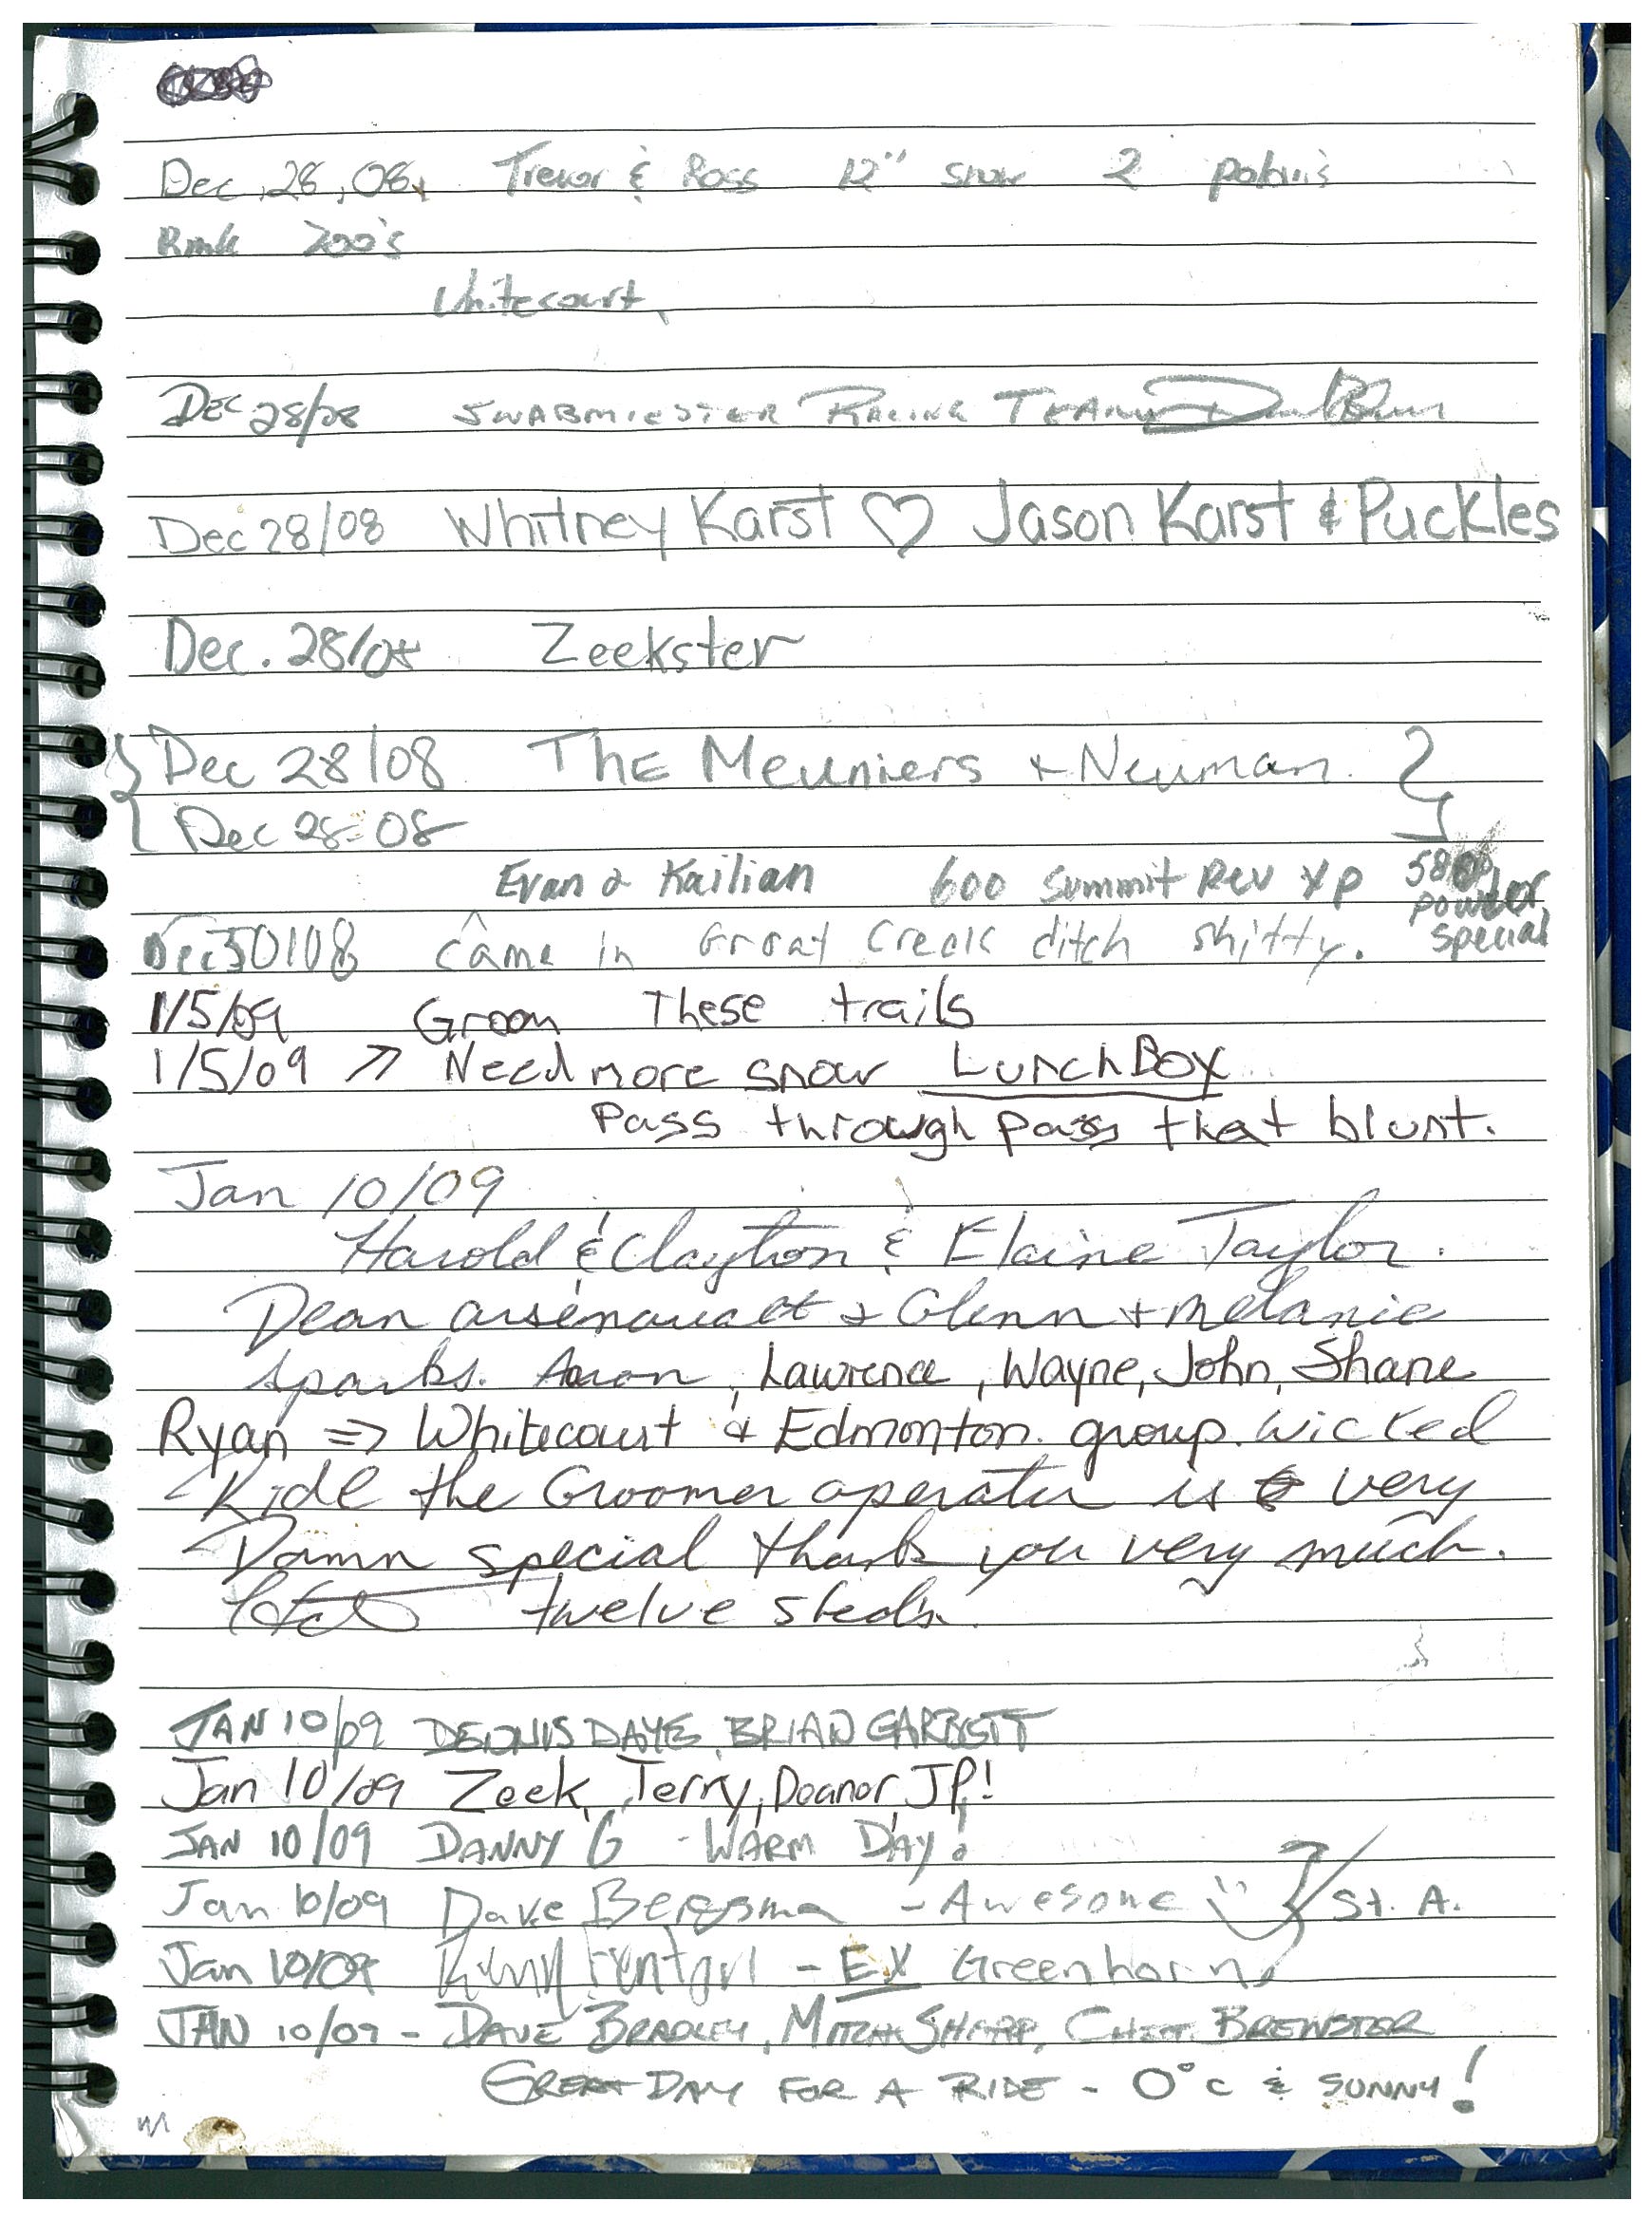 Dec, 28, 08, Trevor & Ross 12" snow 2 polaris
700's
Whitecourt,
DEC 28/08 SWABMIESTER RACING TEAM
Dec 28/08 Whitney Karst ♡ Jason Karst & Puckles
Dec. 28/08 Zeekster
Dec 28/08 The Meuniers + Neuman.
Dec 28-08
Evan & Kailian 600 summit Rev XP 580
powder
special
Dec 30/08 came in Groat Creek ditch shitty.
1/5/09 Groom These trails
1/5/09 → Need more snow LunchBox
Pass through pass that blunt.
Jan 10/09
Harold & Clayton & Elaine Taylor.
Dean arsenault & Glenn + melanie
sparks. Aaron, Lawrence, Wayne, John, Shane
Ryan => Whitecourt & Edmonton. group. wicked
Ride the Groomer operator is very
Damn special thank you very much.
twelve sleds.
JAN 10/09 DENNIS DAYE, BRIAN GARBETT
Jan 10/09 Zeek, Terry, Doanor, JP!
JAN 10/09 DANNY G - WARM DAY!
Jan 10/09 Dave Bergsma - Awesome St. A.
Jan 10/09 - EX Greenhorn
JAN 10/09 - DAVE BRADLEY, MITCH SHARP, CHET BREWSTER
GREAT DAY FOR A RIDE - 0°C & SUNNY!